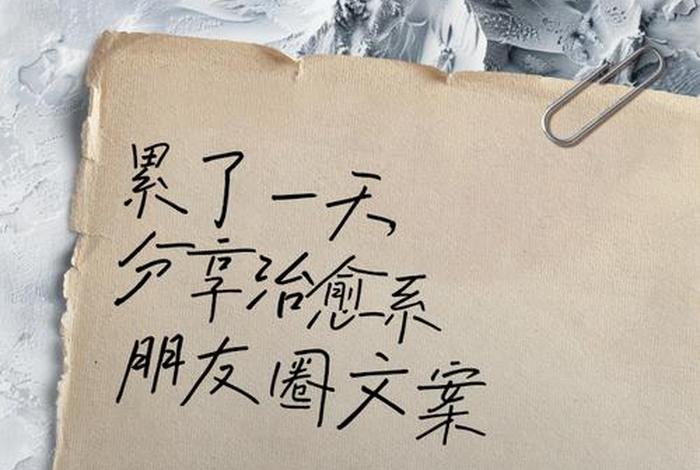 累了一天
分享治愈系
朋友圈文案